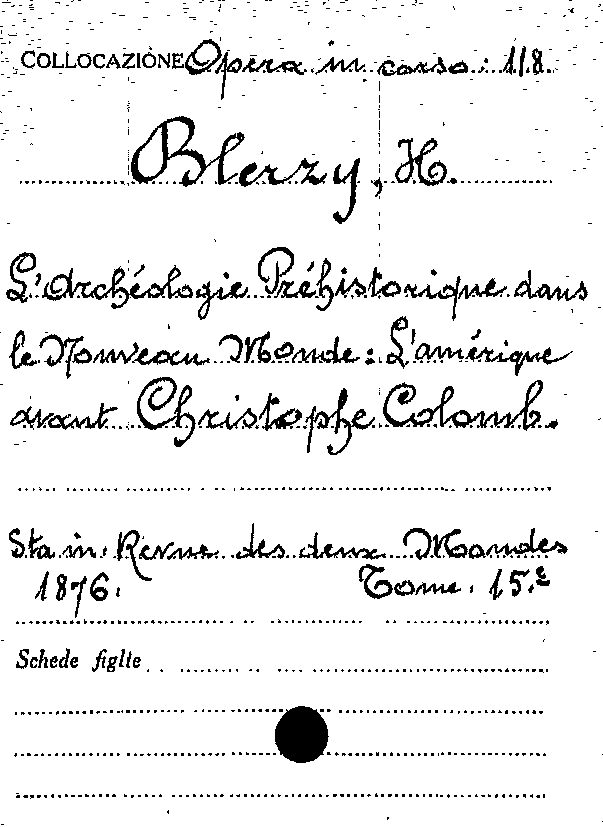 COLLOCAZIONE Opera in corso: 118.
Blerzy, H.
L'Archéologie Préhistorique dans
le Nouveau Monde: L'amérique
avant Christophe Colomb.
Sta in: Revue des deux Mondes
1876. Tome. 15.e
Schede figlie